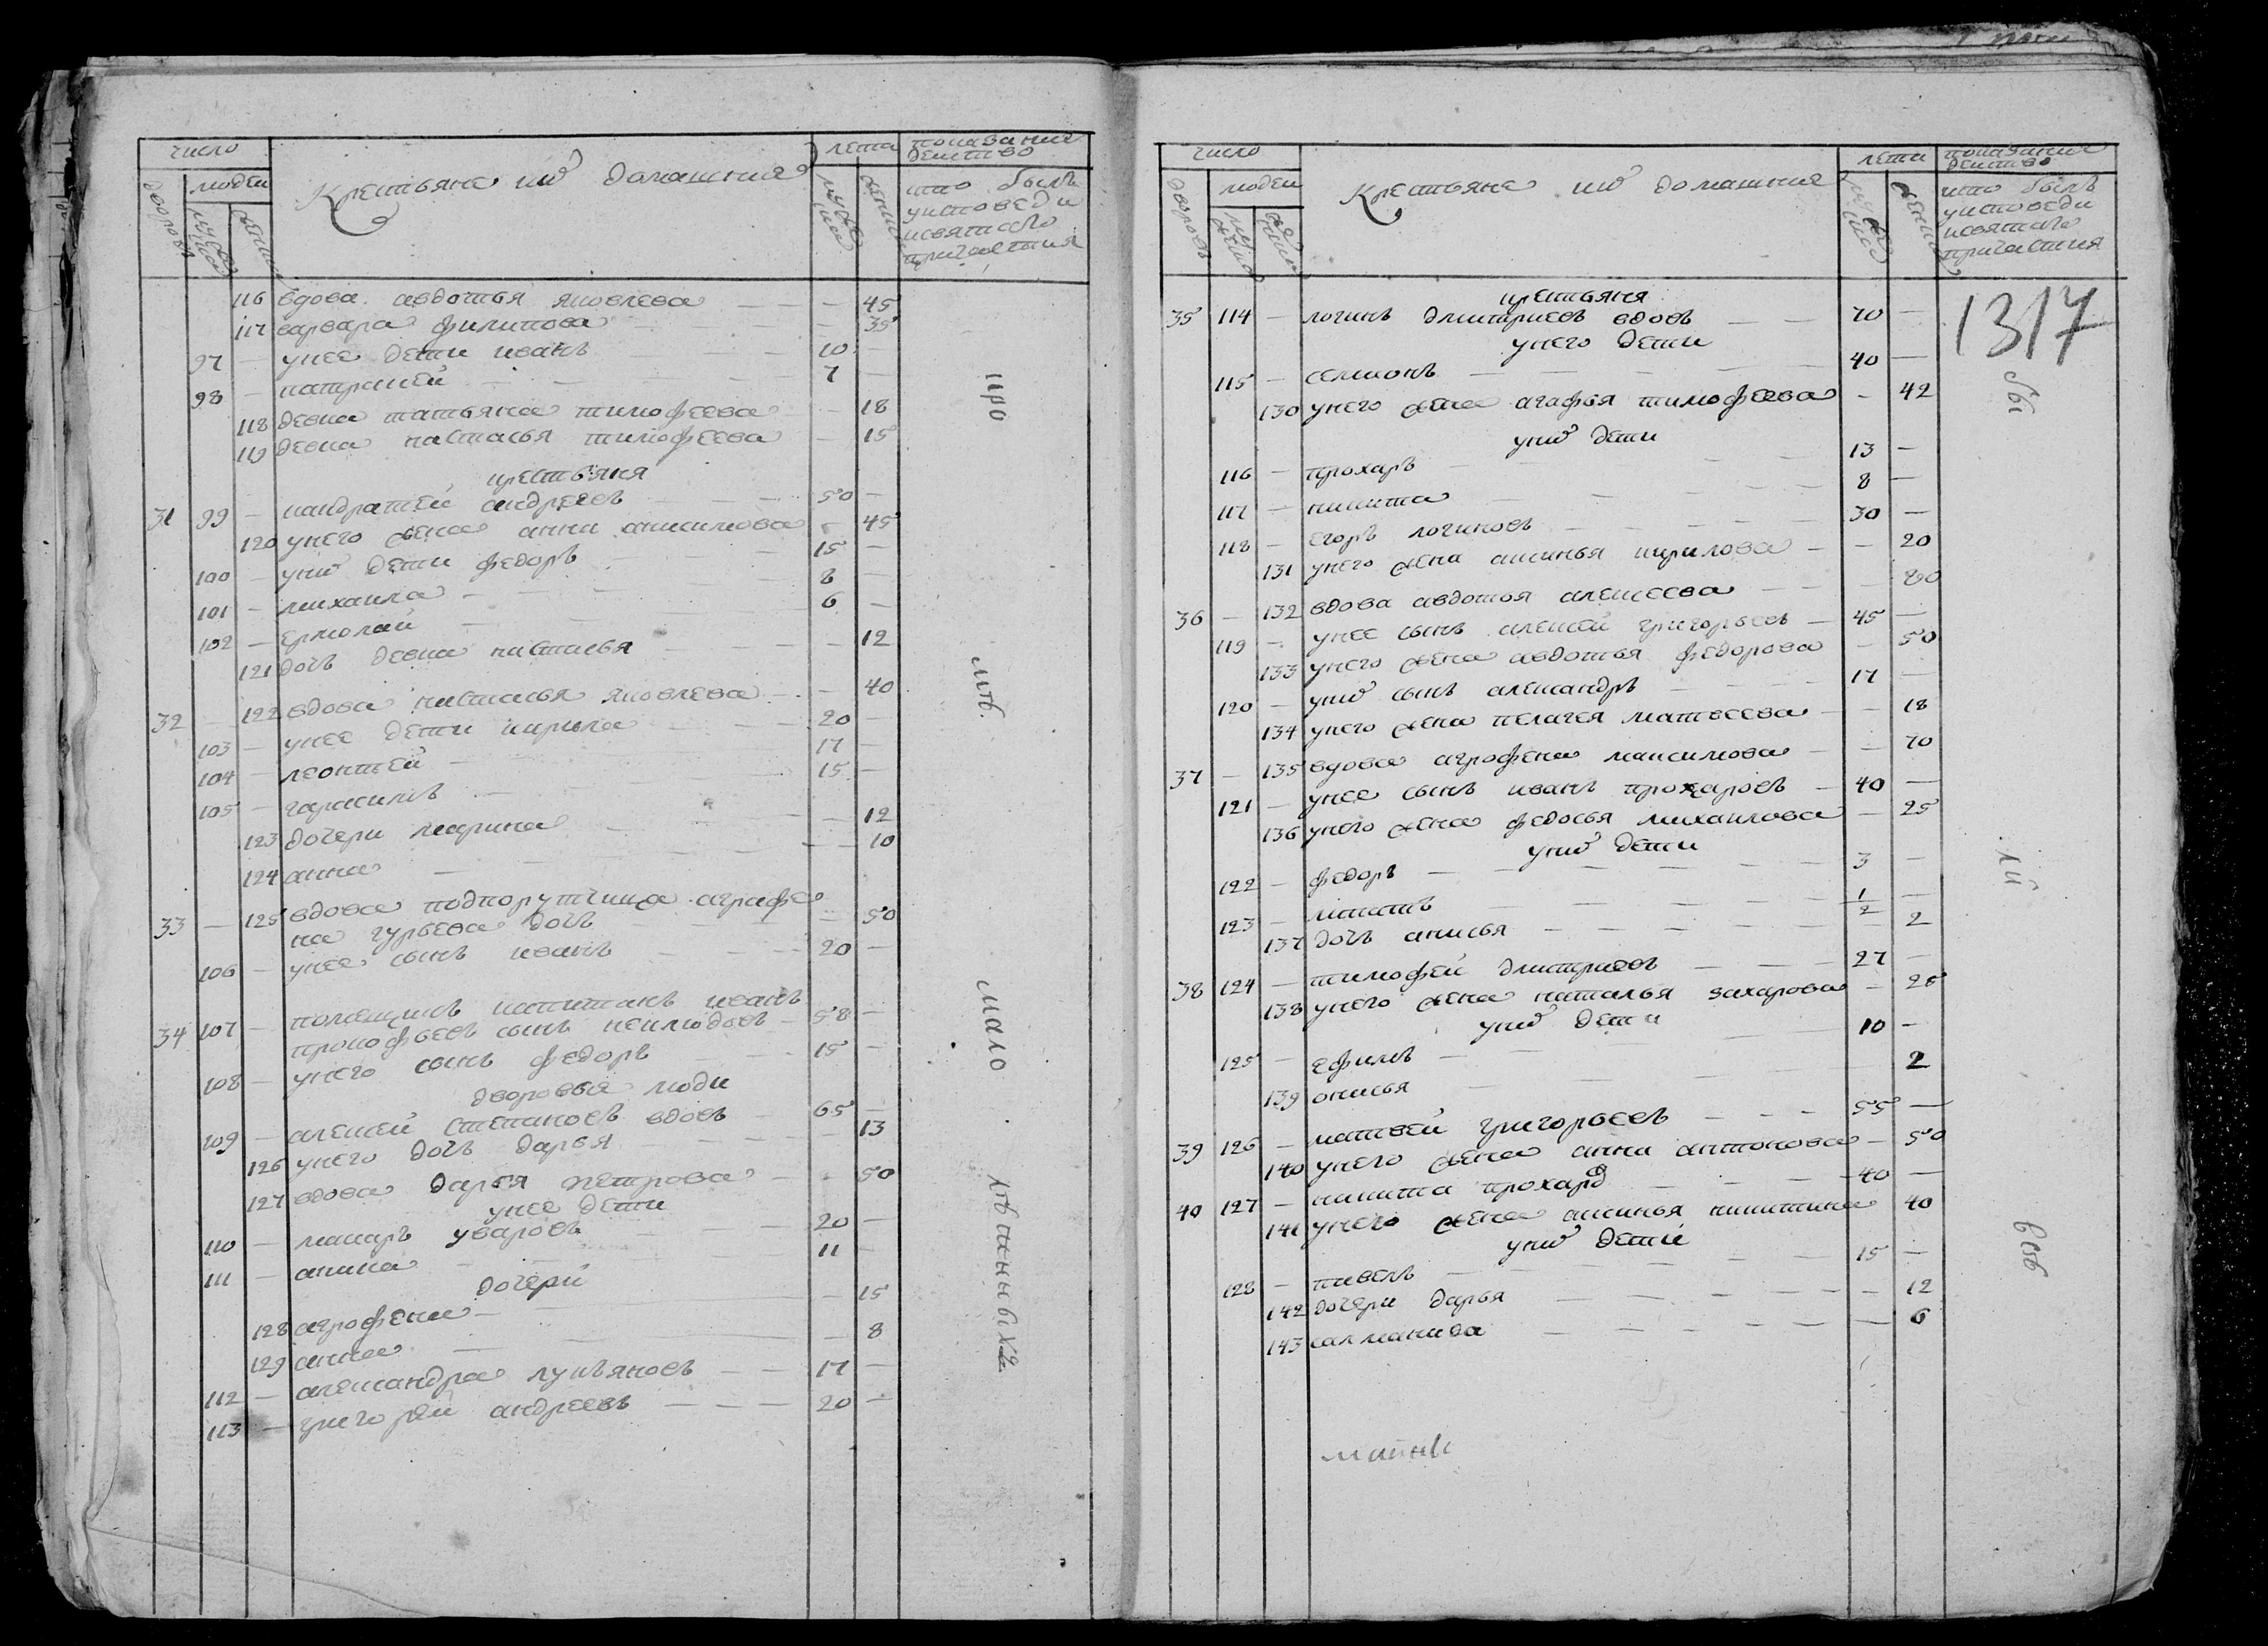 число
людей
дворовъ
мужеска
женска
Крестьяне ихъ домашния
лета
мужеска
женска
показание действо
кто былъ
уисповеди
исвятаго
причастия
116 вдова авдотья яковлева — — — 45
117 варвара филипова — 35
97 — унее дети иванъ — 10 —
98 — патрикей — — — 7 —
118 девка татьяна тимофеева — 18
119 девка настасья тимофеева — 15
крестьяня
31 99 — кандратей андреевъ — — — 50 —
120 унего жена анна анисимова — 45
100 — унихъ дети федоръ — — 15 —
101 — михаила — — — 8 —
102 — ермолай — — 6 —
121 дочь девка настасья — — — 12
32 — 122 вдова настасья яковлева — — 40
103 — унее дети кирила — 20 —
104 — леонтей — 17 —
105 — гарасимъ — — 15 —
123 дочери марина — — 12
124 анна — — — — 10
33 — 125 вдова подпорутчица аграфе
на гурьева дочь — — — 50
106 — унее сынъ иванъ — — — 20 —
34 107 — помещикъ капитанъ иванъ
прокофьевъ сынъ неклюдовъ — 58 —
108 — унего сынъ федоръ — — 15 —
дворовыя люди
109 — алексей степановъ вдовъ — 65 —
126 унего дочь дарья — 13
127 вдова дарья петрова — — 50
унее дети
110 — макаръ уваровъ — — 20 —
111 — аника — — — 11 —
дочери
128 агрофена — — 15
129 анна — — — 8
112 — александра лукьяновъ — — 17 —
113 — григорей андреевъ — — — 20 —
про
мтб.
мало
лѣтныхъ
число
людей
дворовъ
мужеска
женска
Крестьяне ихъ домашния
лета
мужеска
женска
показание действо
кто былъ
уисповеди
исвятаго
причастия
1317
крестьяня
35 114 — логинъ дмитриевъ вдовъ — — 70 —
унего дети
115 — семионъ — — — — 40 —
130 унего жена агафья тимофеева — 42
унихъ дети
116 — прохаръ — — — — 13 —
117 — никита — — — — 8 —
118 — егоръ логиновъ — — — — 30 —
131 унего жена аксинья кирилова — — 20
36 — 132 вдова авдотья алексеева — — — 80
119 — унее сынъ алексей григорьевъ — 45 —
133 унего жена авдотья федорова — 50
120 — унихъ сынъ александръ — — — 17 —
134 унего жена пелагея матвеева — — 18
37 — 135 вдова агрофена максимова — — 70
121 — унее сынъ иванъ прохаровъ — 40 —
136 унего жена федосья михаилова — 25
унихъ дети
122 — федоръ — — — — — 3 —
123 — игнатъ — — — — 1/2 —
137 дочь анисья — — — — — 2
38 124 — тимофей дмитриевъ — — — 27 —
138 унего жена наталья захарова — 26
унихъ дети
125 — ефимъ — — — 10 —
139 анисья — — 2
39 126 — матвей григорьевъ — — — 55 —
140 унего жена анна антонова — 50
40 127 — никита прохаро — — — 40 —
141 унего жена аксинья никитина 40
унихъ дети
128 — павелъ — — — — 15 —
142 дочери дарья — — — — — 12
143 салманида — — — — — 6
бы
лй
вов